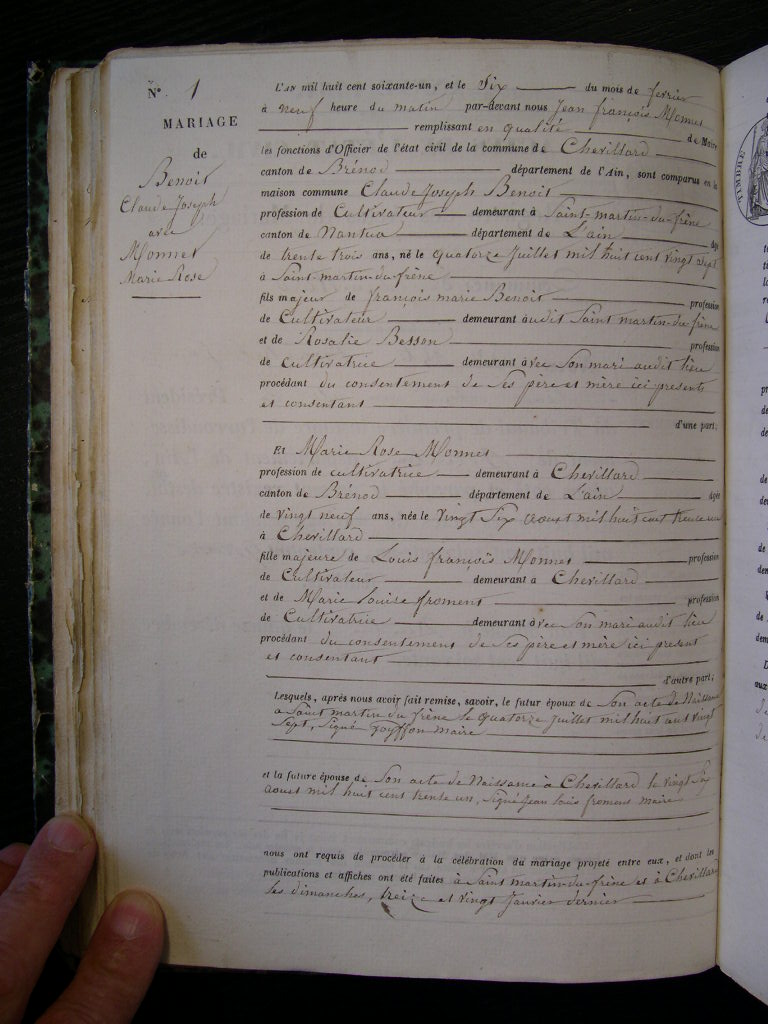 N° 1
MARIAGE
de
Benoit
Claude Joseph
avec
Monnet
Marie Rose
L'AN mil huit cent soixante-un, et le Six du mois de fevrier
à neuf heure du matin par-devant nous Jean françois Monnet
remplissant en qualité de Maire
les fonctions d'Officier de l'état civil de la commune de Chevillard
canton de Brénod département de l'Ain, sont comparus en la
maison commune Claude Joseph Benoit
profession de Cultivateur demeurant à Saint-martin-du-frêne
canton de Nantua département de L'ain âgé
de trente trois ans, né le quatorze Juillet mil huit cent vingt sept
à Saint-martin-du-frêne
fils majeur de françois marie Benoit profession
de Cultivateur demeurant audit Saint martin-du-frêne
et de Rosalie Besson profession
de cultivatrice demeurant avec Son mari audit lieu
procédant du consentement de Ses père et mère ici presents
et consentant
d'une part;
Et Marie Rose Monnet
profession de cultivatrice demeurant à Chevillard
canton de Brénod département de L'ain âgée
de vingt neuf ans, née le vingt Six aoust mil huit cent trente un
à Chevillard
fille majeure de Louis françois Monnet profession
de Cultivateur demeurant à Chevillard
et de Marie Louise froment profession
de Cultivatrice demeurant avec Son mari audit lieu
procédant du consentement de Ses père et mère ici present
et consentant
d'autre part;
Lesquels, après nous avoir fait remise, savoir, le futur époux de Son acte de Naissance
a Saint martin du frêne le quatorze Juillet mil huit cent vingt
Sept, Signé Goyffon maire
et la future épouse de Son acte de Naissance à Chevillard le vingt Six
aoust mil huit cent trente un, Signé Jean louis froment maire
nous ont requis de procéder à la célébration du mariage projeté entre eux, et dont les
publications et affiches ont été faites à Saint martin-du-frêne et à Chevillard
les dimanches, treize et vingt Janvier dernier
TIMBRE